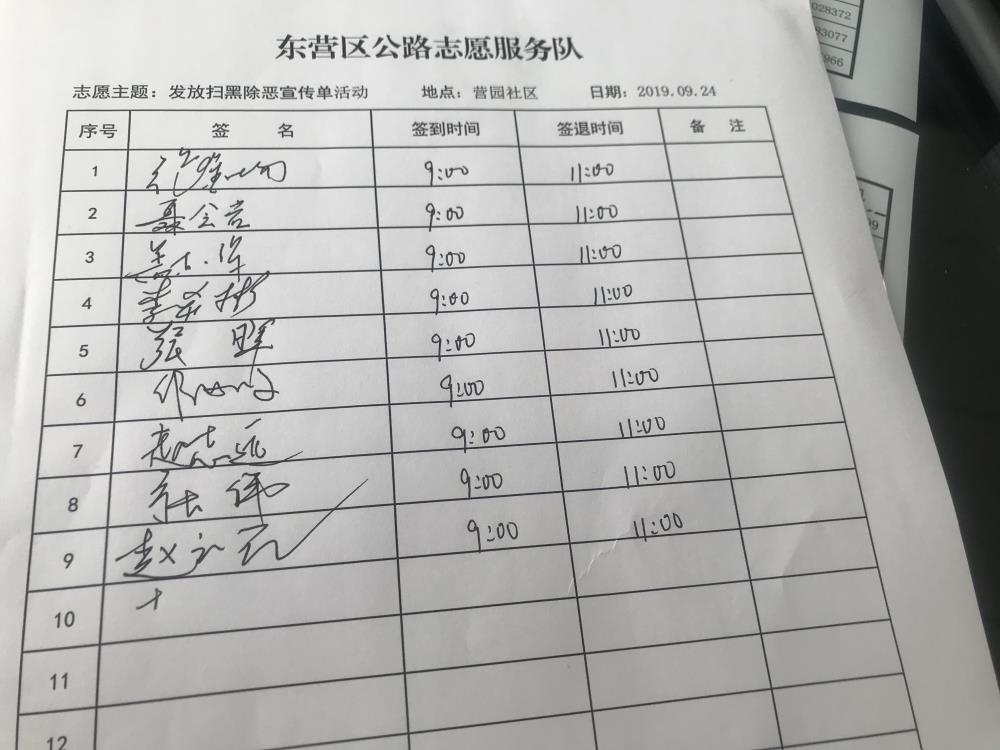 东营区公路志愿服务队
志愿主题：发放扫黑除恶宣传单活动 地点：营园社区 日期：2019.09.24
序号 签 名 签到时间 签退时间 备 注
1 9:00 11:00
2 聂会吉 9:00 11:00
3 9:00 11:00
4 9:00 11:00
5 张晖 9:00 11:00
6 9:00 11:00
7 赵志远 9:00 11:00
8 9:00 11:00
9 赵 9:00 11:00
10
11
12
028372
83077
966